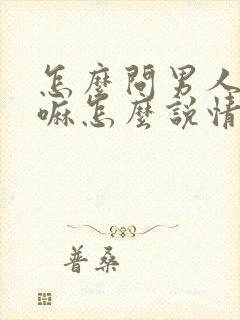 怎麼問男人
嘛怎麼說情
普桑